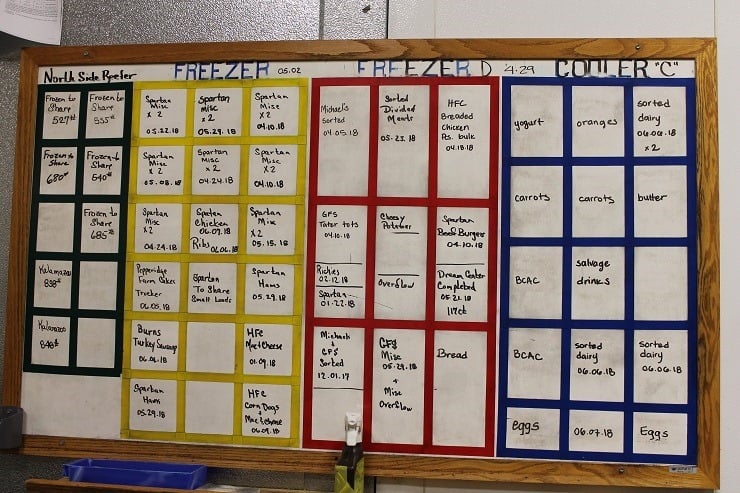 North Side Reefer
FREEZER 05.02
FREEZER D 4.29
COOLER "C"
Frozen to
Share
527#
Frozen to
Share
555#
Frozen to
Share
680#
Frozen to
Share
540#
Frozen to
Share
685#
Kalamazoo
838#
Kalamazoo
848#
Spartan
Misc
x 2
05.22.18
Spartan
misc
x 2
05.29.18
Spartan
Misc
x 2
04.10.18
Spartan
Misc
x 2
05.08.18
Spartan
Misc
x 2
04.24.18
Spartan
Misc
x 2
04.10.18
Spartan
Misc
x 2
04.24.18
Spartan
Chicken
06.07.18
Ribs 06.06.18
Spartan
Misc
x2
05.15.18
Pepperidge
Farm Cakes
Trucker
06.05.18
Spartan
To Share
Small Loads
Spartan
Hams
05.29.18
Burns
Turkey Sausage
06.04.18
HFC
Mac & Cheese
01.09.18
Spartan
Ham
05.29.18
HFC
Corn Dogs
+
Mac & Cheese
Michael's
Sorted
04.05.18
Sorted
Divided
Meats
05.23.18
HFC
Breaded
Chicken
Pts. bulk
04.18.18
GFS
Tater tots
04.10.18
Richies
02.12.18
Spartan
01.22.18
Cheesy
Potatoes
Overflow
Spartan
Beef Burger
04.10.18
Dream Center
Completed
05.21.18
117ct
+
GFS
Sorted
12.01.17
GFS
Misc
05.29.18
+
Misc
Overflow
Bread
yogurt
oranges
sorted
dairy
06.06.18
x 2
carrots
carrots
butter
BCAC
salvage
drinks
BCAC
sorted
dairy
06.06.18
sorted
dairy
06.06.18
eggs
06.07.18
Eggs